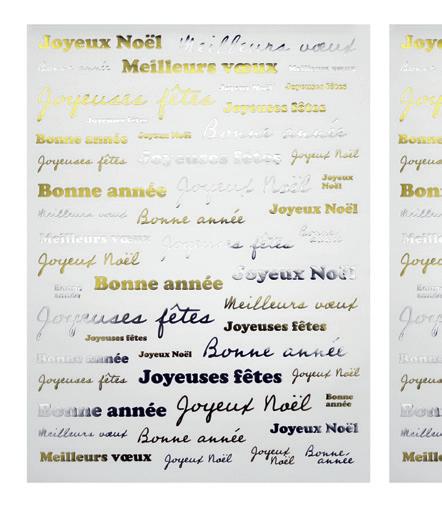 Joyeux Noël Meilleurs vœux
Bonne année Meilleurs vœux Meilleurs vœux
Joyeuses fêtes Joyeux Noël Joyeuses fêtes
Joyeuses fêtes Joyeuses fêtes
Bonne année Joyeux Noël Bonne année
Joyeuses fêtes Joyeuses fêtes Joyeux Noël
Bonne année Joyeux Noël Joyeux Noël
Meilleurs vœux Bonne année Joyeux Noël
Meilleurs vœux Joyeuses fêtes Bonne année
Joyeux Noël Bonne année Joyeux Noël
Bonne année Joyeuses fêtes Meilleurs vœux
Joyeuses fêtes Joyeuses fêtes
Bonne année Joyeux Noël Bonne année
Joyeuses fêtes Joyeuses fêtes Joyeux Noël
Bonne année Joyeux Noël Bonne année
Meilleurs vœux Bonne année Joyeux Noël
Meilleurs vœux Joyeux Noël Joyeux Noël Bonne année